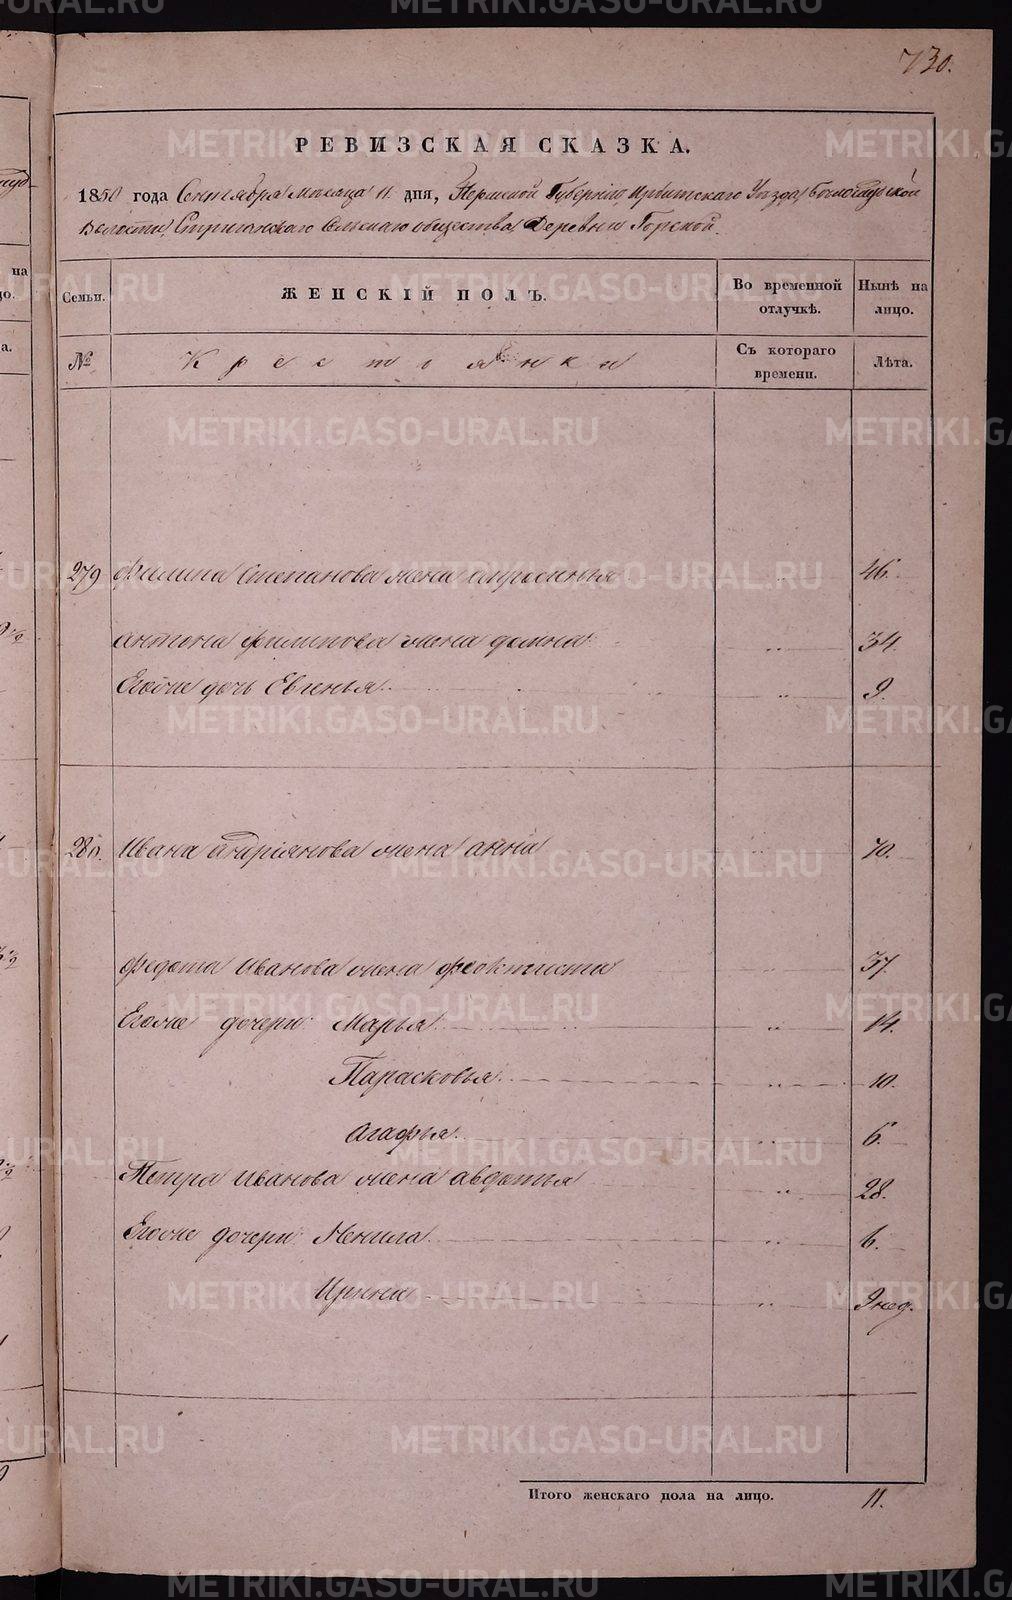 730.
РЕВИЗСКАЯ СКАЗКА.
1850 года Сентября месяца 11 дня, Пермской Губернии Ирбитского Уезда
Волости, Стриганского Сельскаго общества Деревни Горской.
Семьи.
ЖЕНСКІЙ ПОЛЪ.
Во временной отлучкѣ.
Нынѣ на лицо.
№
Крестьянки
Съ котораго времени.
Лѣта.
279 Филипа Степанова жена 46.
Антона Филипова жена Домна 34.
Егоже дочь Евгенья 9.
280. Ивана Андріянова жена Анна 70.
Федота Иванова жена Феоктиста 37.
Егоже дочери Марья 14.
Парасковья 10.
Агафья 6.
Петра Иванова жена Авдотья 28.
Егоже дочери Ненила 6.
Ирина 9 нед.
Итого женскаго пола на лицо. 11.
METRIKI.GASO-URAL.RU